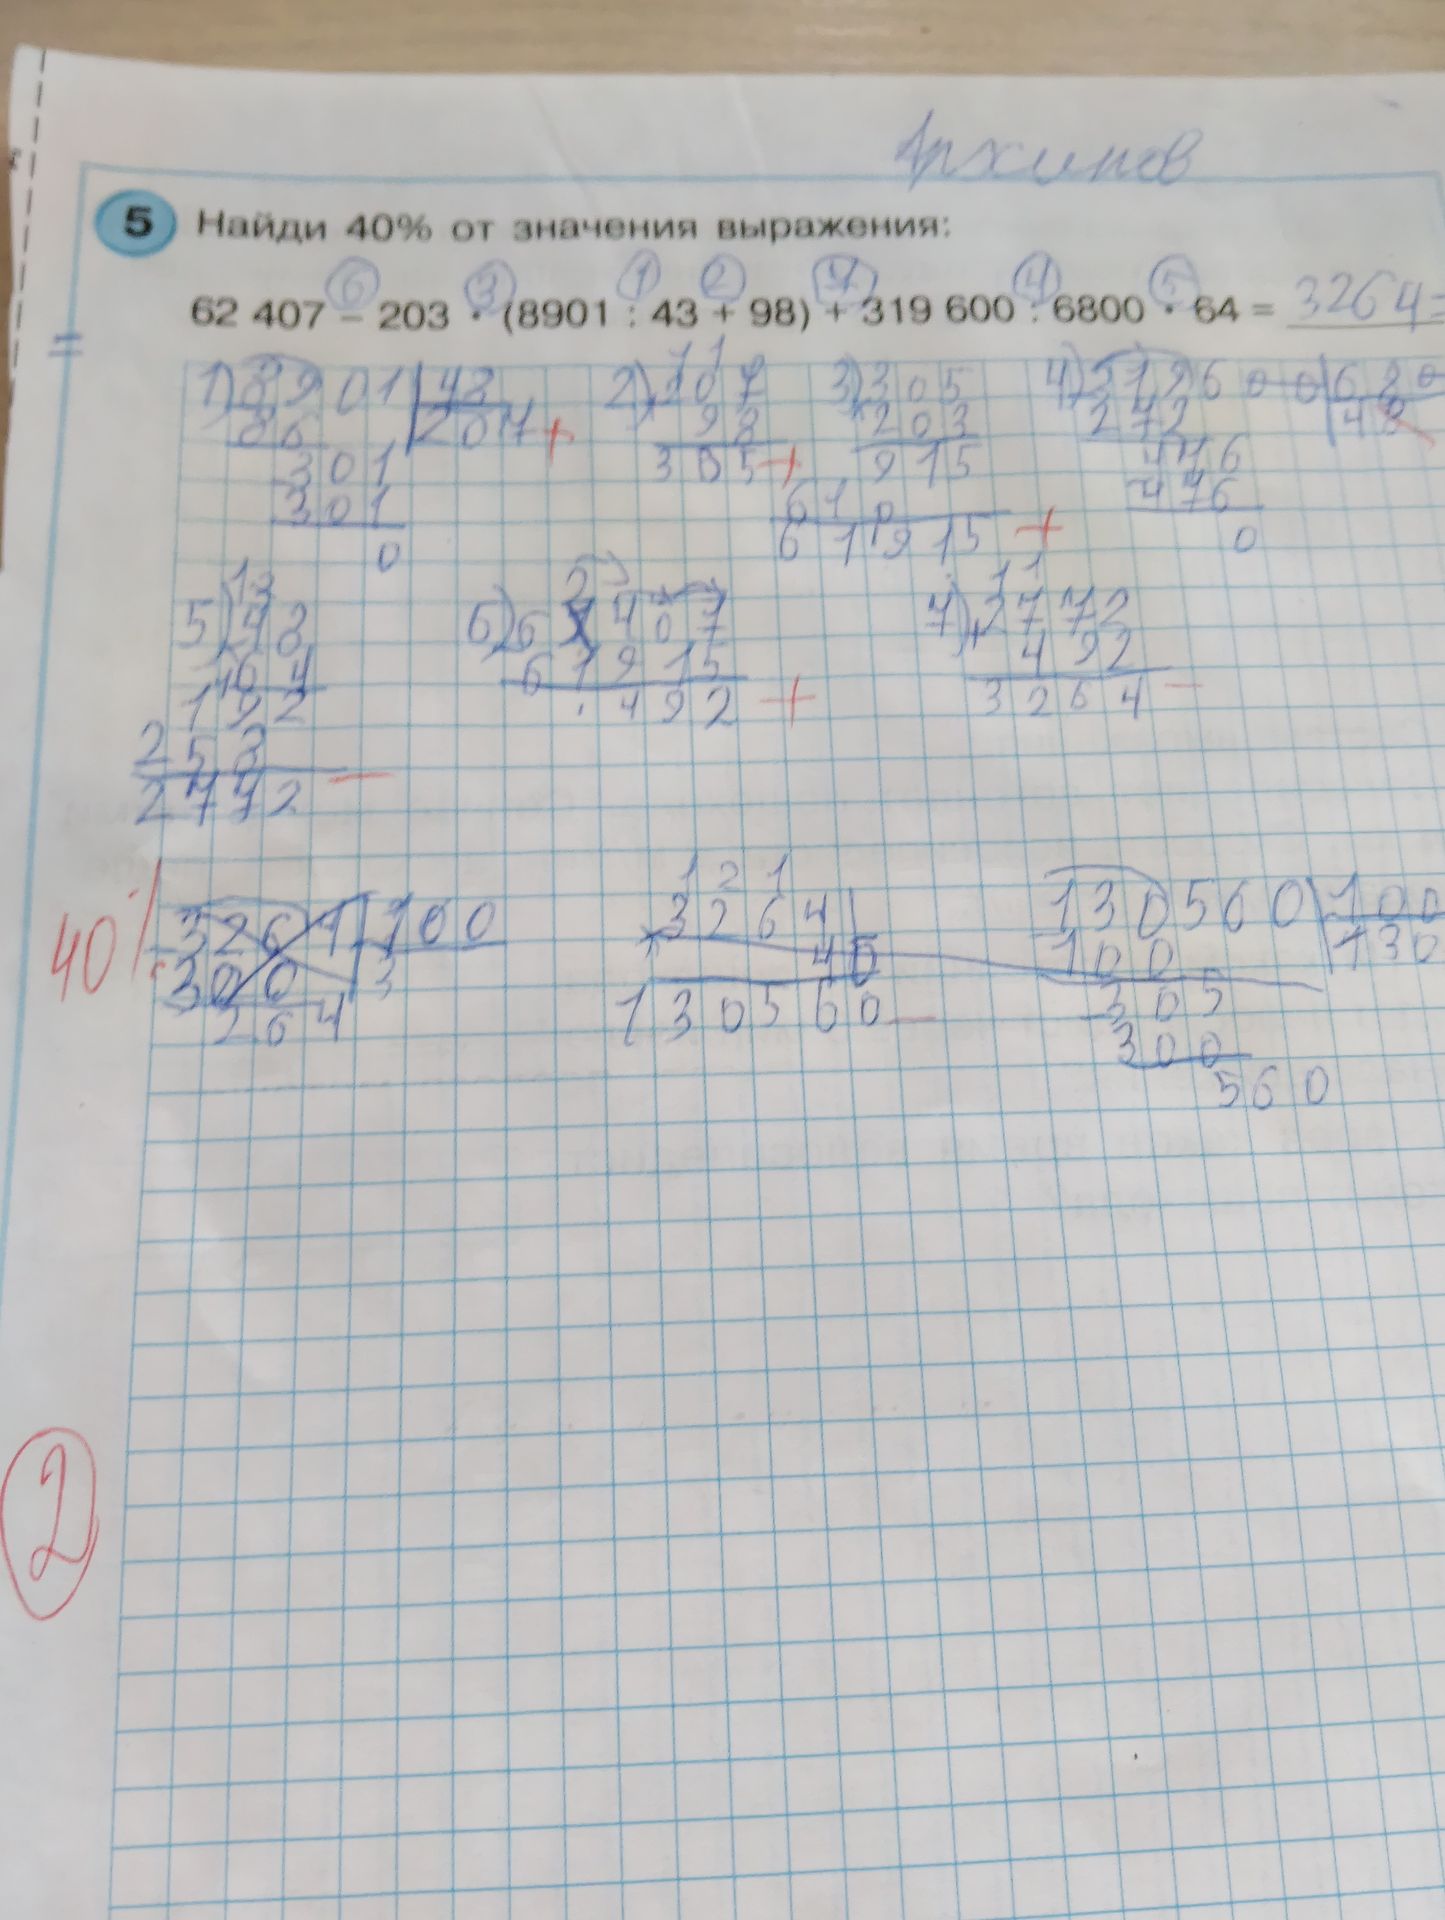 Архипов
5 Найди 40% от значения выражения:
6 3 1 2 7 4 5
62 407 – 203 · (8901 : 43 + 98) + 319 600 : 6800 · 64 = 3264=
=
1) 8901 43 2) 207 3) 305 4) 319600 6800
86 207 + 98 203 272 48
301 305 + 915 476
301 610 476
0 61915 + 0
5) 48 6) 62407 7) 2772
64 61915 492
192 492 + 3264 –
2772 –
40% 3264 100 3264 130560 100
300 3 40 100 130
264 130560 – 305
300
560
2